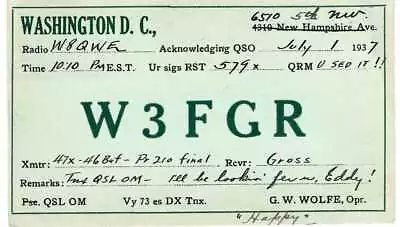 6510 5th NW.
WASHINGTON D. C., 4310 New Hampshire Ave.
Radio W8QWE Acknowledging QSO July 1 1937
Time 10:10 PM E.S.T. Ur sigs RST 579x QRM U SED IT !!
W3FGR
Xmtr: 47x-46 Buf - Pr 210 final Rcvr: Gross
Remarks: Tnx QSL OM - I'll be lookin' fer u, Eddy!
Pse. QSL OM Vy 73 es DX Tnx. G. W. WOLFE, Opr.
"Happy"